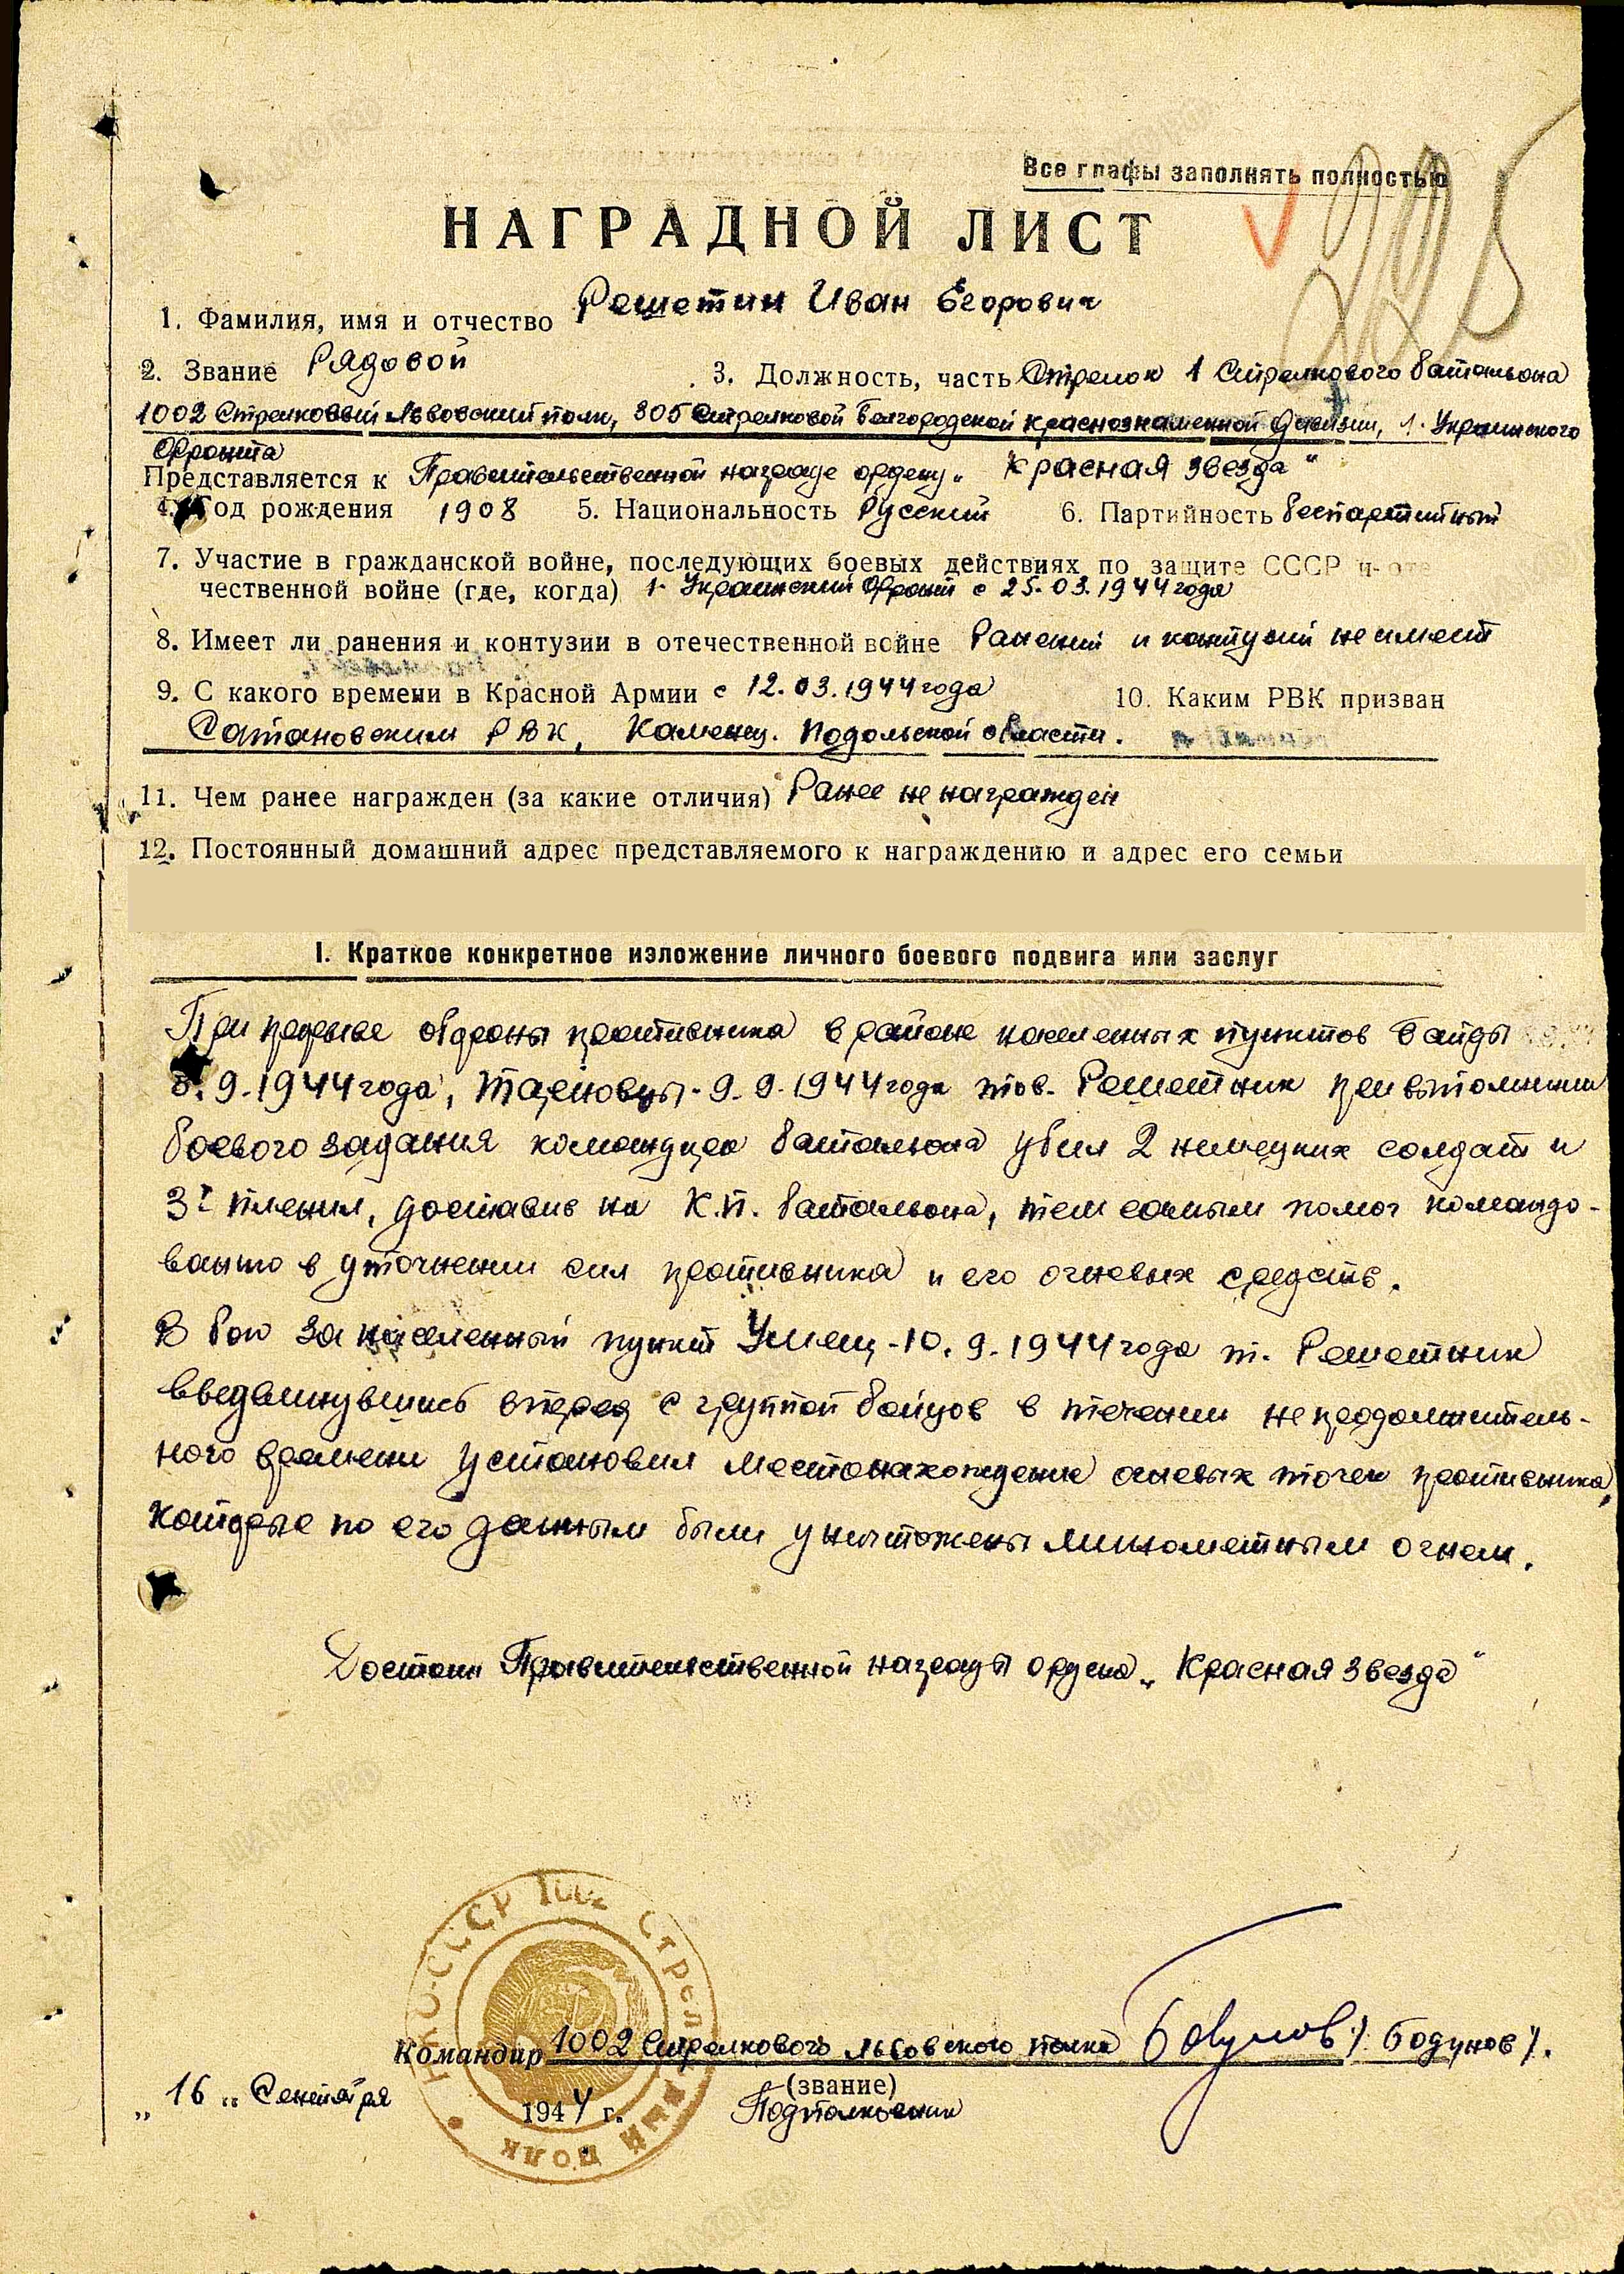 Все графы заполнять полностью
225
НАГРАДНОЙ ЛИСТ
1. Фамилия, имя и отчество Решетин Иван Егорович
2. Звание Рядовой 3. Должность, часть Стрелок 1 Стрелкового батальона
1002 Стрелковый Львовский полк, 305 Стрелковой Белгородской краснознаменной дивизии, 1. Украинского
Фронта
Представляется к Правительственной награде ордену „Красная звезда“
4. Год рождения 1908 5. Национальность Русский 6. Партийность беспартийный
7. Участие в гражданской войне, последующих боевых действиях по защите СССР и оте
чественной войне (где, когда) 1- Украинский Фронт с 25.03.1944 года
8. Имеет ли ранения и контузии в отечественной войне Ранений и контузий не имеет
9. С какого времени в Красной Армии с 12.03.1944 года 10. Каким РВК призван
Сатановским РВК, Каменец. Подольской области.
11. Чем ранее награжден (за какие отличия) Ранее не награжден
12. Постоянный домашний адрес представляемого к награждению и адрес его семьи
I. Краткое конкретное изложение личного боевого подвига или заслуг
При прорыве обороны противника в районе населенных пунктов Байды
8.9.1944 года, - 9.9.1944 года тов. Решетник при выполнении
боевого задания командира батальона убил 2 немецких солдат и
3х пленил, доставив на К.П. батальона, тем самым помог командо-
ванию в уточнении сил противника и его огневых средств.
В бою за населенный пункт Умещ - 10.9.1944 года т. Решетник
выдвинувшись вперед с группой бойцов в течении непродолжитель-
ного времени установил местонахождение огневых точек противника,
которые по его данным были уничтожены минометным огнем.
Достоин Правительственной награды ордена „Красная звезда“
НКО-СССР 1002 Стрелковый полк
Командир 1002 Стрелкового Львовского полка /Бодунов/.
(звание)
„16“ Сентября 1944 г. Подполковник